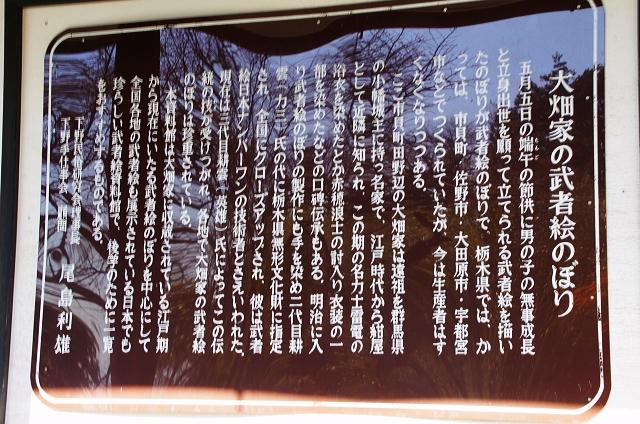 大畑家の武者絵のぼり
五月五日の端午の節供に男の子の無事成長
と立身出世を願って立てられる武者絵を描い
たのぼりが武者絵のぼりで、栃木県では、か
っては、市貝町・佐野市・大田原市・宇都宮
市などでつくられていたが、今は生産者はす
くなくなりつつある。
ここ市貝町田野辺の大畑家は遠祖を群馬県
の小幡城主に持つ名家で、江戸時代から紺屋
として近隣に知られ、この期の名力士雷電の
浴衣を染めたとか赤穂浪士の討入り衣装の一
部を染めたなどの口碑伝承もある。明治に入
り武者絵のぼりの製作にも手を染め二代目耕
雲(力三)氏の代に栃木県無形文化財に指定
され、全国にクローズアップされ、彼は武者
絵日本ナンバーワンの技術者とさえいわれた。
現在は三代目耕雲(英雄)氏によってこの伝
統の技が受けつがれ、各地で大畑家の武者絵
のぼりは珍重されている。
本資料館は大畑家に収蔵されている江戸期
から現在にいたる武者絵のぼりを中心にして
全国各地の武者絵も展示されている日本でも
珍らしい武者絵資料館で、後学のために一覧
をおすすめするものである。
下野民俗研究会
尾島利雄